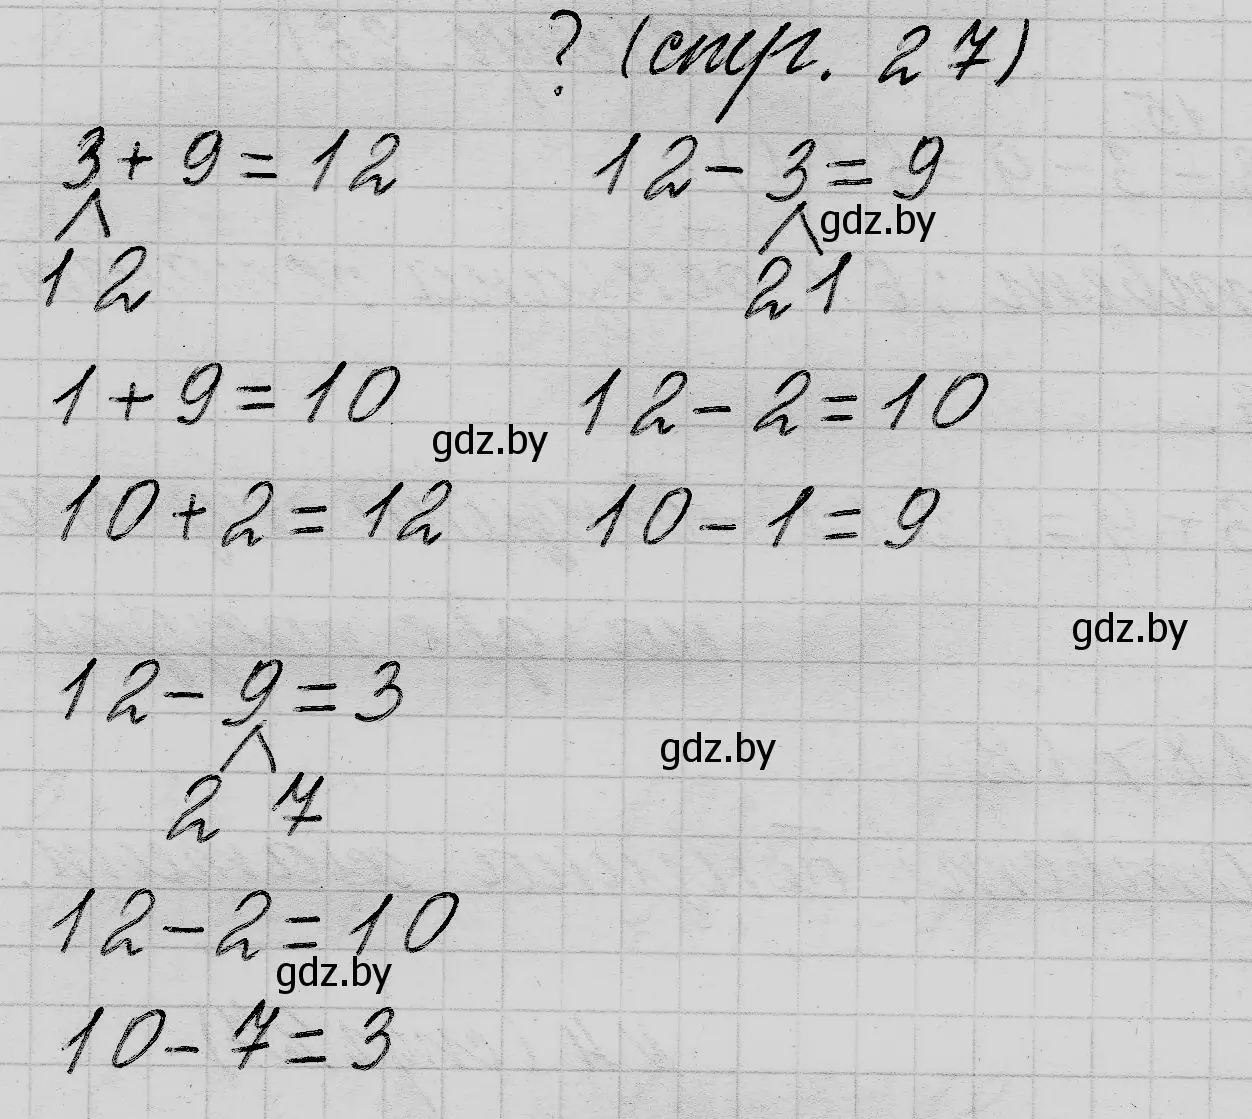 ? (стр. 27)
3 + 9 = 12
12 - 3 = 9
gdz.by
1 2
2 1
1 + 9 = 10
12 - 2 = 10
gdz.by
10 + 2 = 12
10 - 1 = 9
gdz.by
12 - 9 = 3
gdz.by
2 7
12 - 2 = 10
gdz.by
10 - 7 = 3